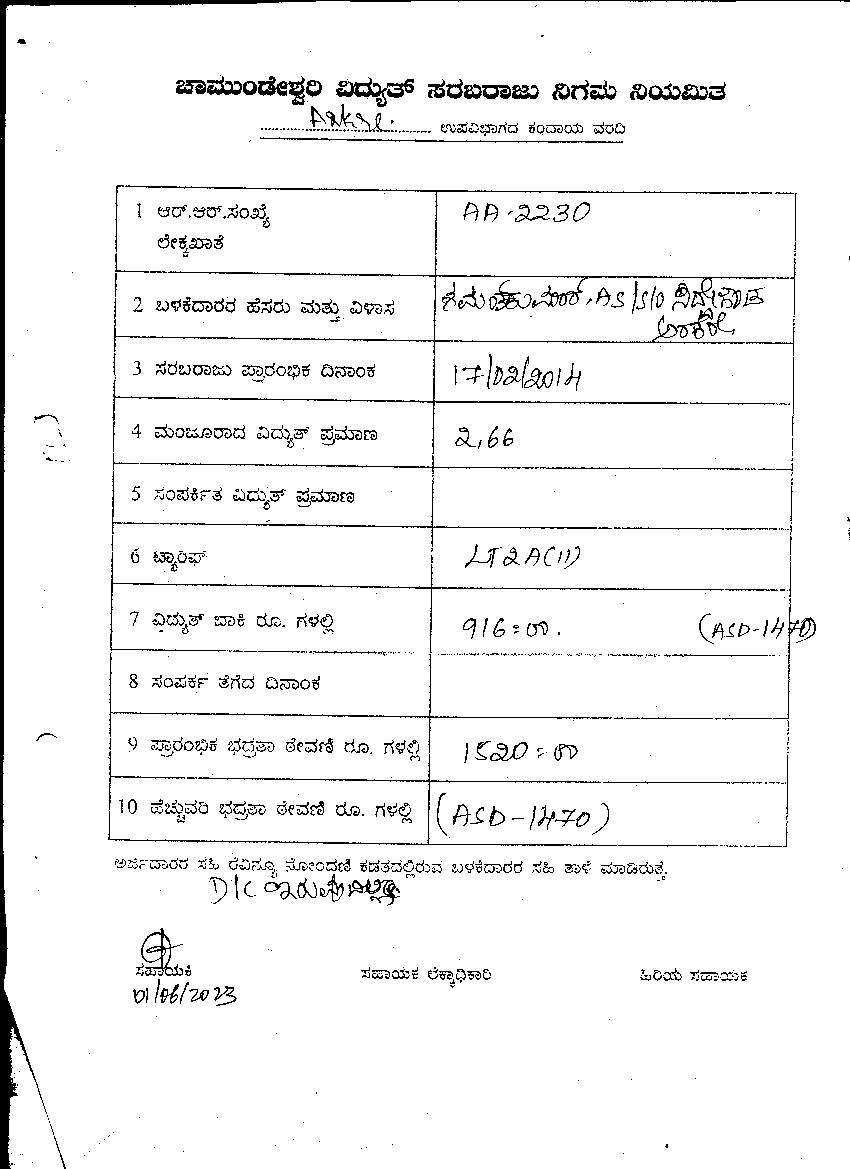 ಚಾಮುಂಡೇಶ್ವರಿ ವಿದ್ಯುತ್ ಸರಬರಾಜು ನಿಗಮ ನಿಯಮಿತ
ಉಪವಿಭಾಗದ ಕಂದಾಯ ವರದಿ
1 ಆರ್.ಆರ್.ಸಂಖ್ಯೆ AA-2230
ಲೇಕ್ಕಖಾತೆ
2 ಬಳಕೆದಾರರ ಹೆಸರು ಮತ್ತು ವಿಳಾಸ AS S/O
3 ಸರಬರಾಜು ಪ್ರಾರಂಭಿಕ ದಿನಾಂಕ 17/02/2014
4 ಮಂಜೂರಾದ ವಿದ್ಯುತ್ ಪ್ರಮಾಣ 2,66
5 ಸಂಪರ್ಕಿತ ವಿದ್ಯುತ್ ಪ್ರಮಾಣ
6 ಟ್ಯಾರಿಫ್ LT2A(11)
7 ವಿದ್ಯುತ್ ಬಾಕಿ ರೂ. ಗಳಲ್ಲಿ 916=00. (ASD-1470)
8 ಸಂಪರ್ಕ ತೆಗೆದ ದಿನಾಂಕ
9 ಪ್ರಾರಂಭಿಕ ಭದ್ರತಾ ಠೇವಣಿ ರೂ. ಗಳಲ್ಲಿ 1520=00
10 ಹೆಚ್ಚುವರಿ ಭದ್ರತಾ ಠೇವಣಿ ರೂ. ಗಳಲ್ಲಿ (ASD-1470)
ಅರ್ಜಿದಾರರ ಸಹಿ ರೆವಿನ್ಯೂ ನೋಂದಣಿ ಕಡತದಲ್ಲಿರುವ ಬಳಕೆದಾರರ ಸಹಿ ತಾಳೆ ಮಾಡಿರುತ್ತೆ.
D/C
ಸಹಾಯಕ ಸಹಾಯಕ ಲೆಕ್ಕಾಧಿಕಾರಿ ಹಿರಿಯ ಸಹಾಯಕ
01/06/2023